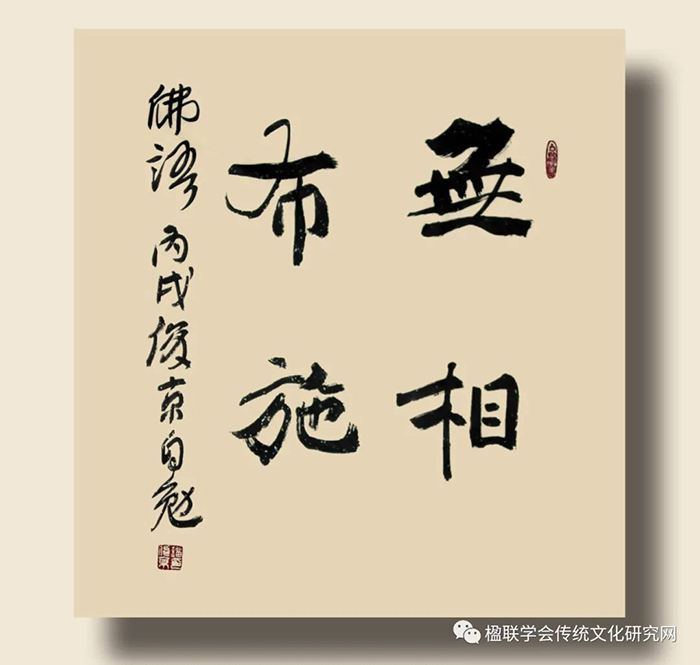 無相
布施
佛語 丙戌俊京自勉
楹联学会传统文化研究网